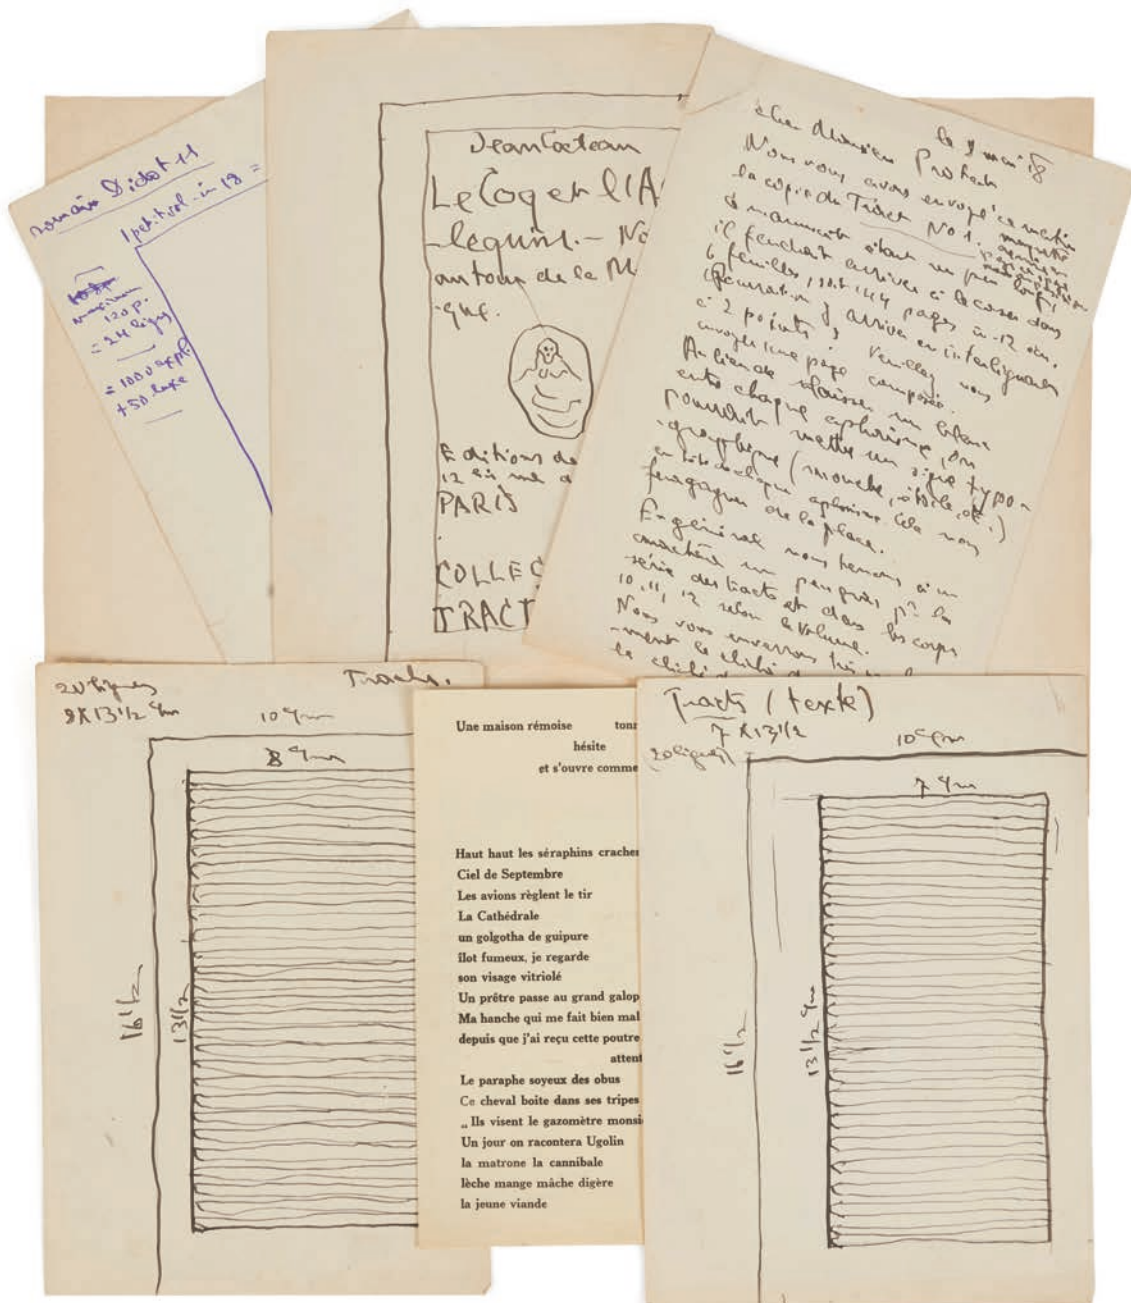 romain Didot 11
1 petit vol. in 18 =
maximum
120 p.
= 24 lignes
= 1000 expl
+ 50 luxe
Jean Cocteau
Le Coq et l'A
-lequin. - No
autour de la M
-que.
Editions de
12
PARIS
COLLEC
TRACT
le 8 mai 18
cher Monsieur Protat
Nous vous avons envoyé ce matin
la copie du Tract No 1.
Le manuscrit étant un peu long,
il faudrait arriver à le caser dans
6 feuilles, soit 144 pages in-12
y arriver en interlignant
à 2 points, Veuillez nous
envoyer une page composée.
Au lieu de laisser un blanc
entre chaque aphorisme, on
pourrait mettre un signe typo-
-graphique (mouche, étoile, etc.)
en tête de chaque aphorisme. Cela nous
fera gagner de la place.
En général nous tenons à un
caractère un peu gras pr la
série des tracts et dans les corps
10, 11, 12 selon le volume.
Nous vous enverrons
-ment le cliché
le cliché
20 lignes
Tracts.
8 X 13 1/2 cm
10 cm
8 cm
16 1/2
13 1/2
Une maison rémoise tonn
hésite
et s'ouvre comme
Haut haut les séraphins crachen
Ciel de Septembre
Les avions règlent le tir
La Cathédrale
un golgotha de guipure
îlot fumeux, je regarde
son visage vitriolé
Un prêtre passe au grand galop
Ma hanche qui me fait bien mal
depuis que j'ai reçu cette poutre
attent
Le paraphe soyeux des obus
Ce cheval boite dans ses tripes
„ Ils visent le gazomètre monsi
Un jour on racontera Ugolin
la matrone la cannibale
lèche mange mâche digère
la jeune viande
Tracts (texte)
7 X 13 1/2
(20 lignes)
10 cm
7 cm
16 1/2
13 1/2 cm